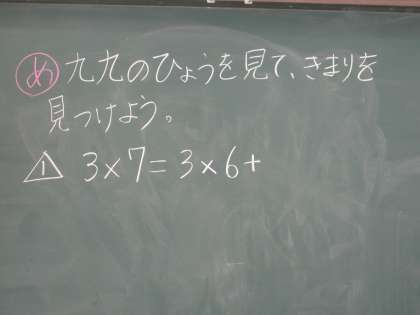 め 九九のひょうを見て、きまりを
見つけよう。
1 3×7=3×6+